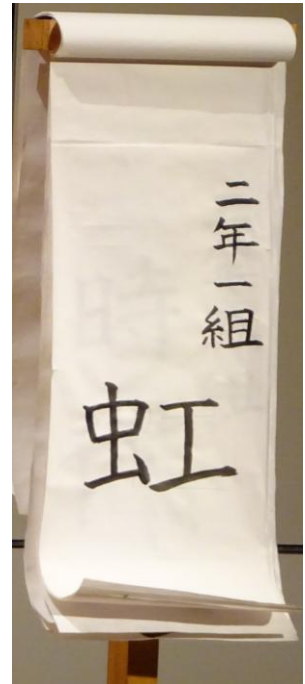 二年一組
虹